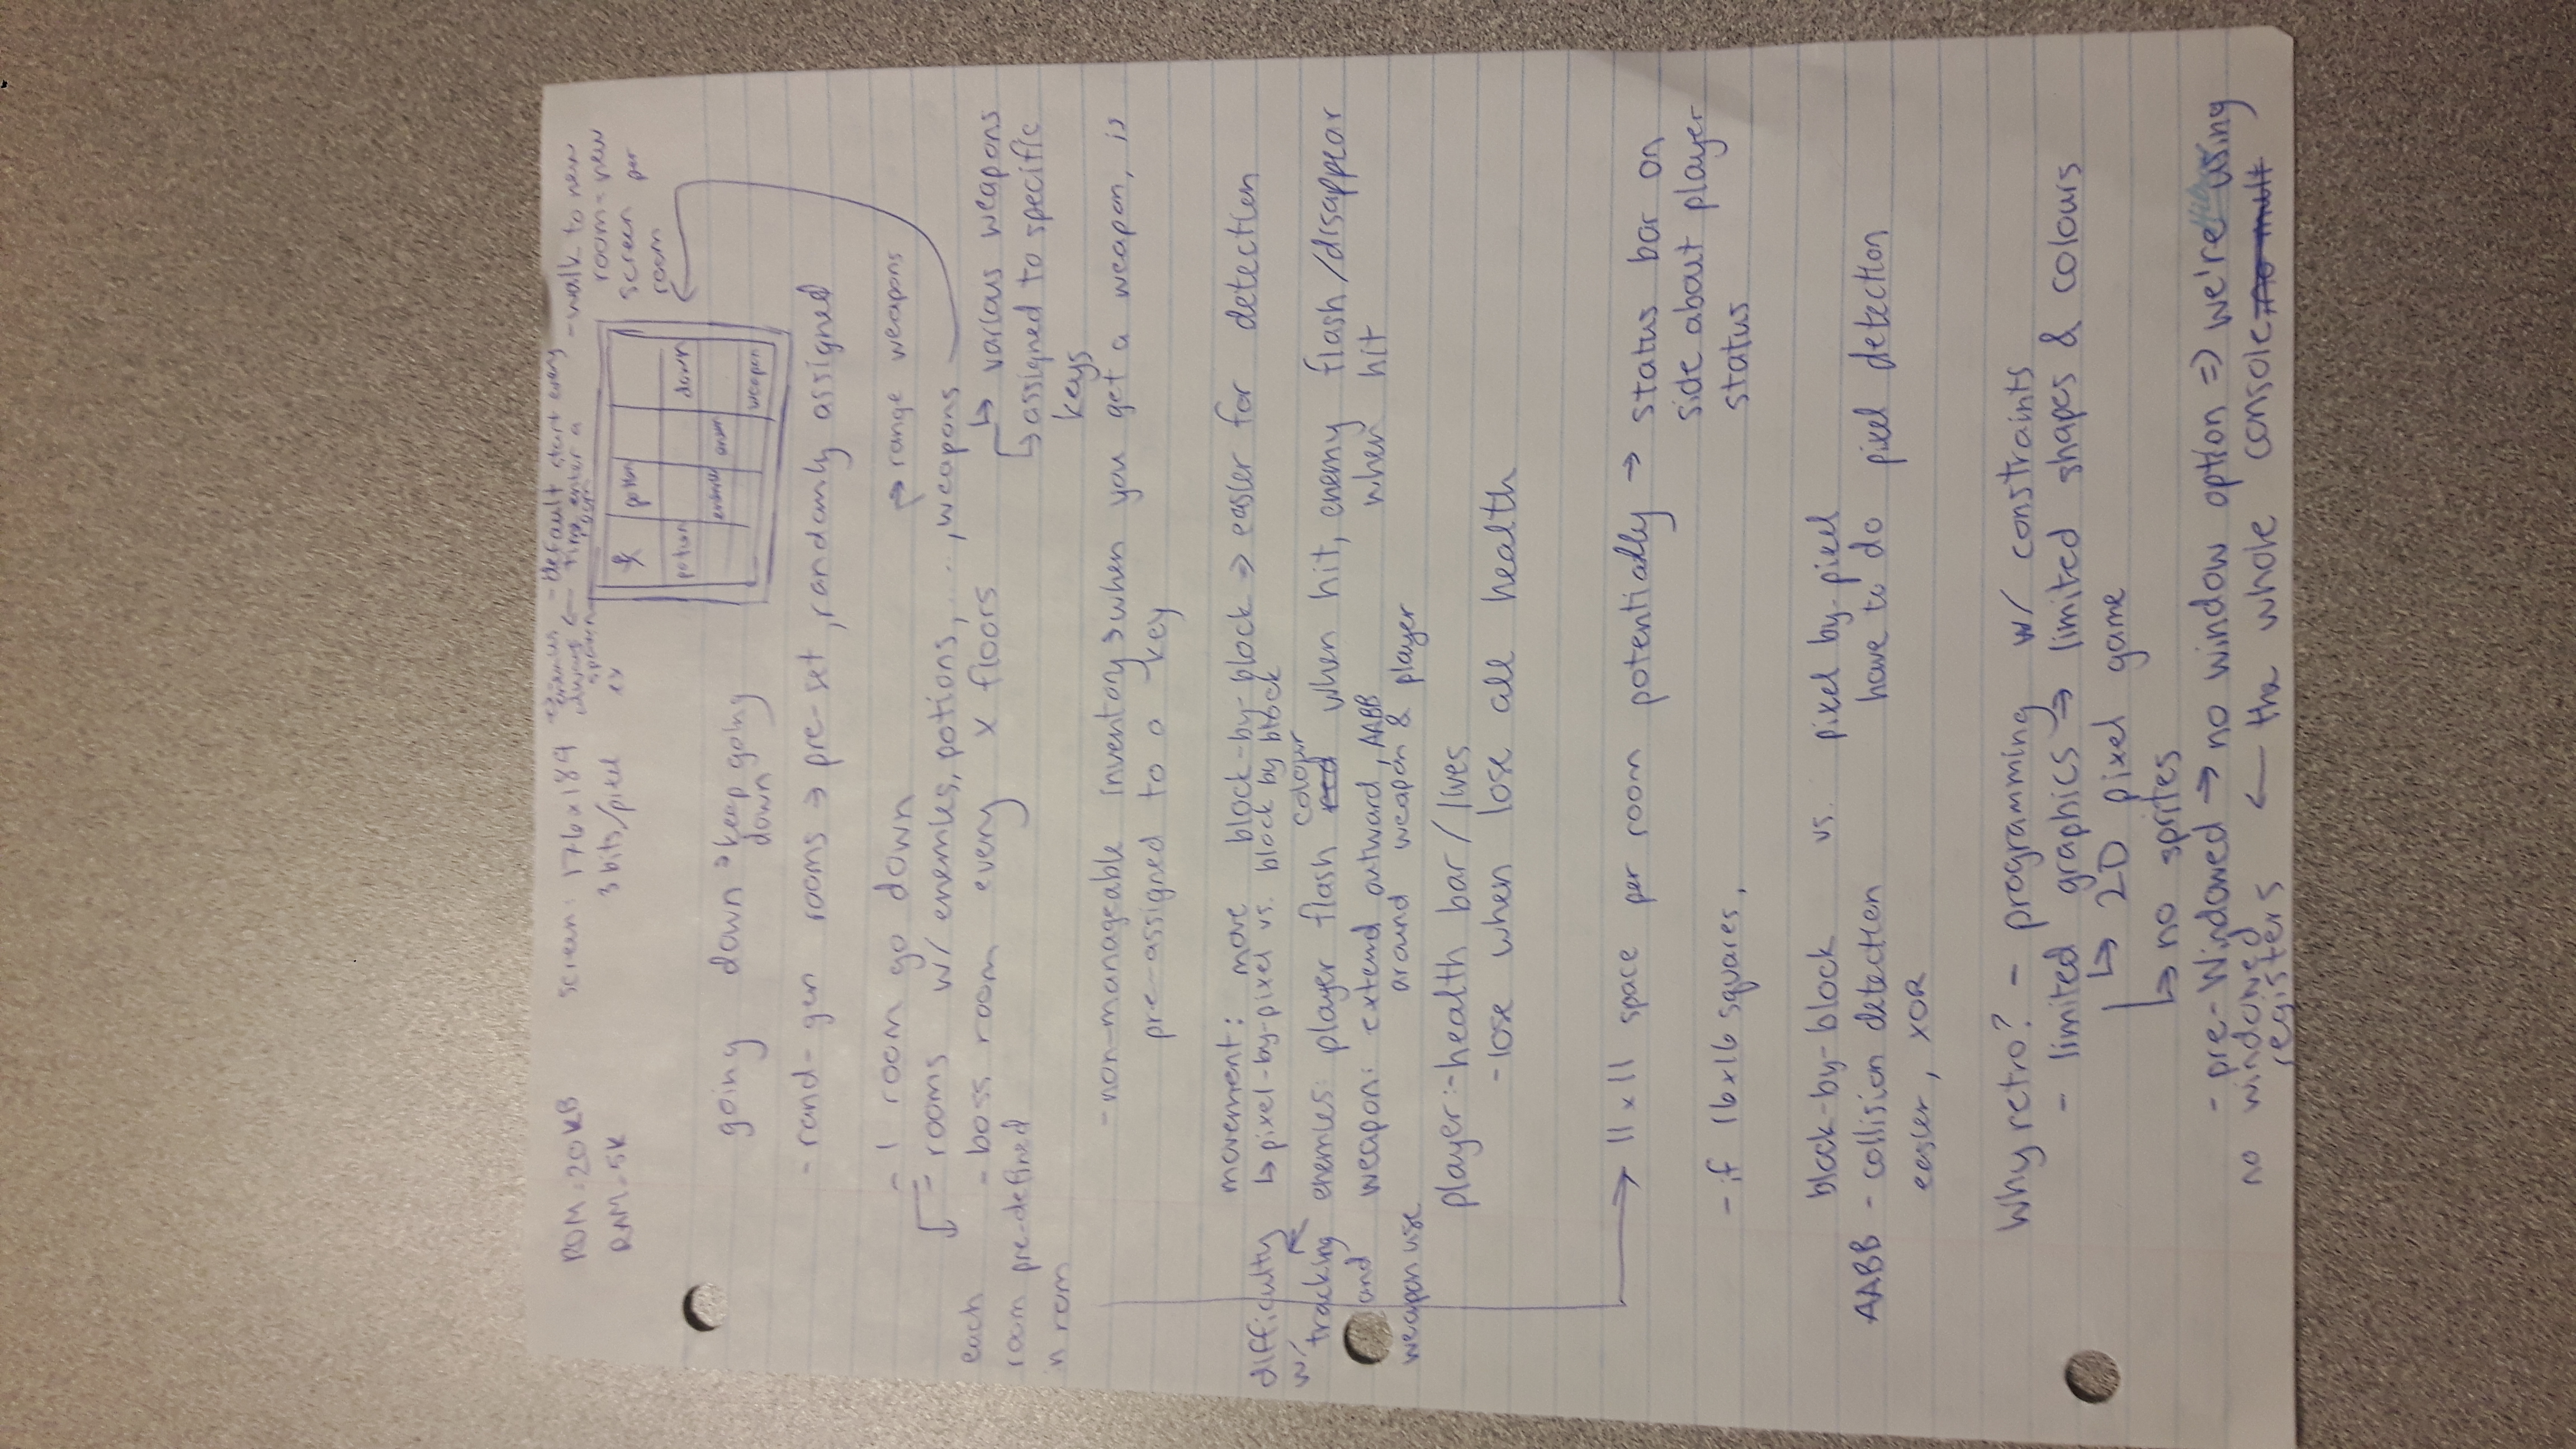 ROM: 20KB
RAM: 5K
screen: 176x184
3 bits/pixel
ex
- default start every
time enter a
- walk to new
room = new
screen per
room
potion
potion
enemy
down
weapon
going down → keep going
down
- rand-gen rooms → pre-set, randomly assigned
- 1 room go down
→ range weapons
- rooms w/ enemies, potions, ..., weapons
- boss room every x floors
↳ various weapons
↳ assigned to specific
keys
each
room pre-defined
in rom
- non-manageable inventory → when you get a weapon, is
pre-assigned to a key
movement: move block-by-block ⇒ easier for detection
↳ pixel-by-pixel vs. block by block
difficulty
w/ tracking
and
weapon use
enemies: player flash colour when hit, enemy flash/disappear
when hit
weapon: extend outward, AABB
around weapon & player
player: - health bar/lives
- lose when lose all health
→ 11x11 space per room potentially → status bar on
side about player
status
- if 16x16 squares,
block-by-block vs. pixel by-pixel
AABB - collision detection have to do pixel detection
easier, XOR
Why retro? - programming w/ constraints
- limited graphics ⇒ limited shapes & colours
↳ 2D pixel game
↳ no sprites
- pre-Windowed → no window option ⇒ we're using
no windowed ← the whole console
registers